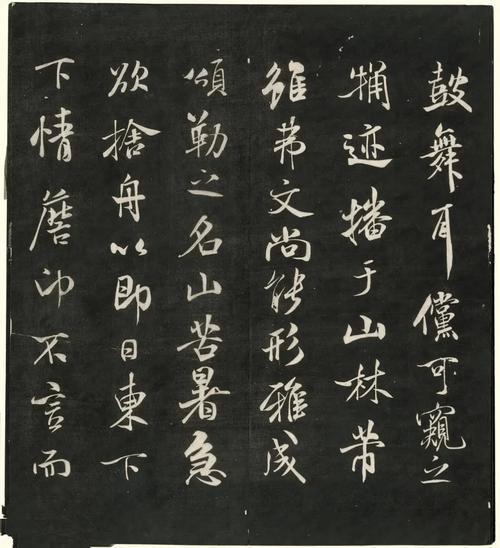 鼓舞耳儻可窺之
迹播于山林带
雖芾文尚能形雅成
頌勒之名山苦暑急
欲捨舟以即日東下
下情卬不言而